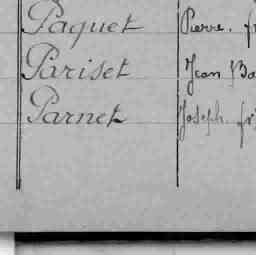 Paquet Pierre. fr
Pariset Jean Ba
Parnet Joseph. fr